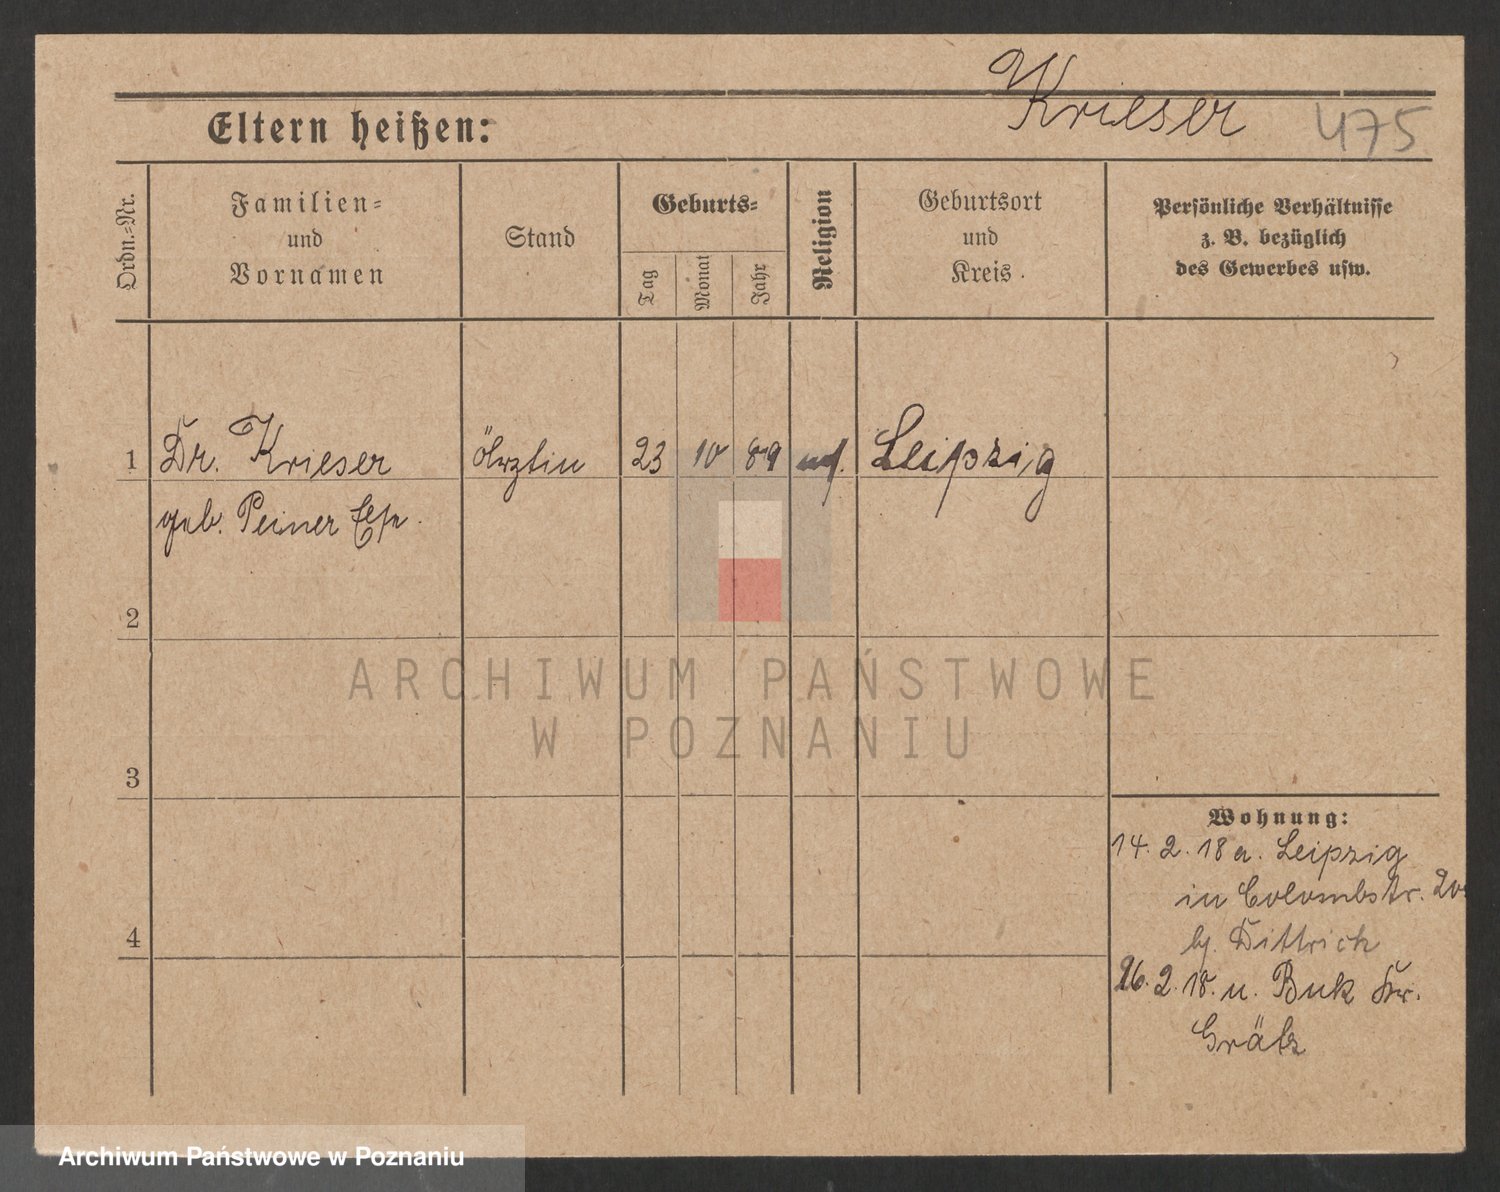 Krieser 475
Eltern heißen:
Ordn.-Nr.
Familien-
und
Vornamen
Stand
Geburts-
Tag
Monat
Jahr
Religion
Geburtsort
und
Kreis.
Persönliche Verhältnisse
z. B. bezüglich
des Gewerbes usw.
1 Dr. Krieser Ärztin 23 10 89 Leipzig
geb. Peiner
2
3
4
Wohnung:
14. 2. 18 a. Leipzig
in Colombstr. 20
b/. Dittrich
26. 2. 18. n. Buk Kr.
Grätz
ARCHIWUM PAŃSTWOWE
W POZNANIU
Archiwum Państwowe w Poznaniu